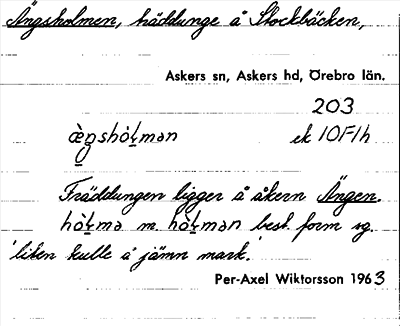 Ängsholmen, träddunge å Stockbäcken,
Askers sn, Askers hd, Örebro län.
203
æ̀ŋshòḷmən ek 10F1h
Träddungen ligger å åkern Ängen.
hòḷmə m. hòḷmən best. form sg.
'liten kulle å jämn mark.'
Per-Axel Wiktorsson 1963